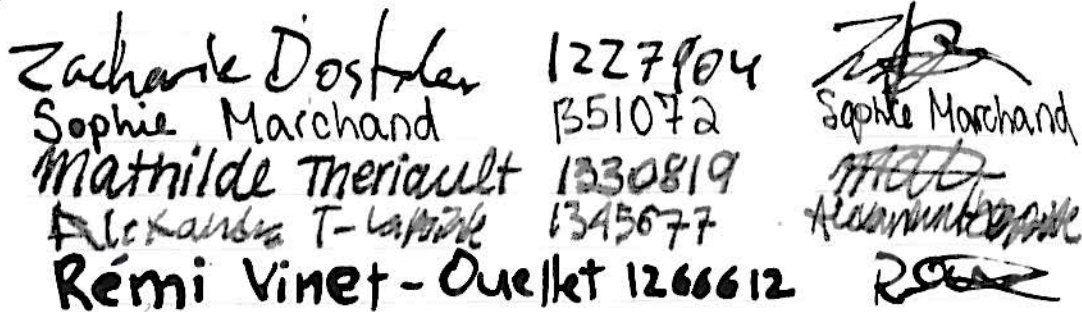 Zacharie Dostaler 1227904
Sophie Marchand 1351072 Sophie Marchand
Mathilde Theriault 1330819
Alexandra T- 1345677
Rémi Vinet-Ouellet 1266612